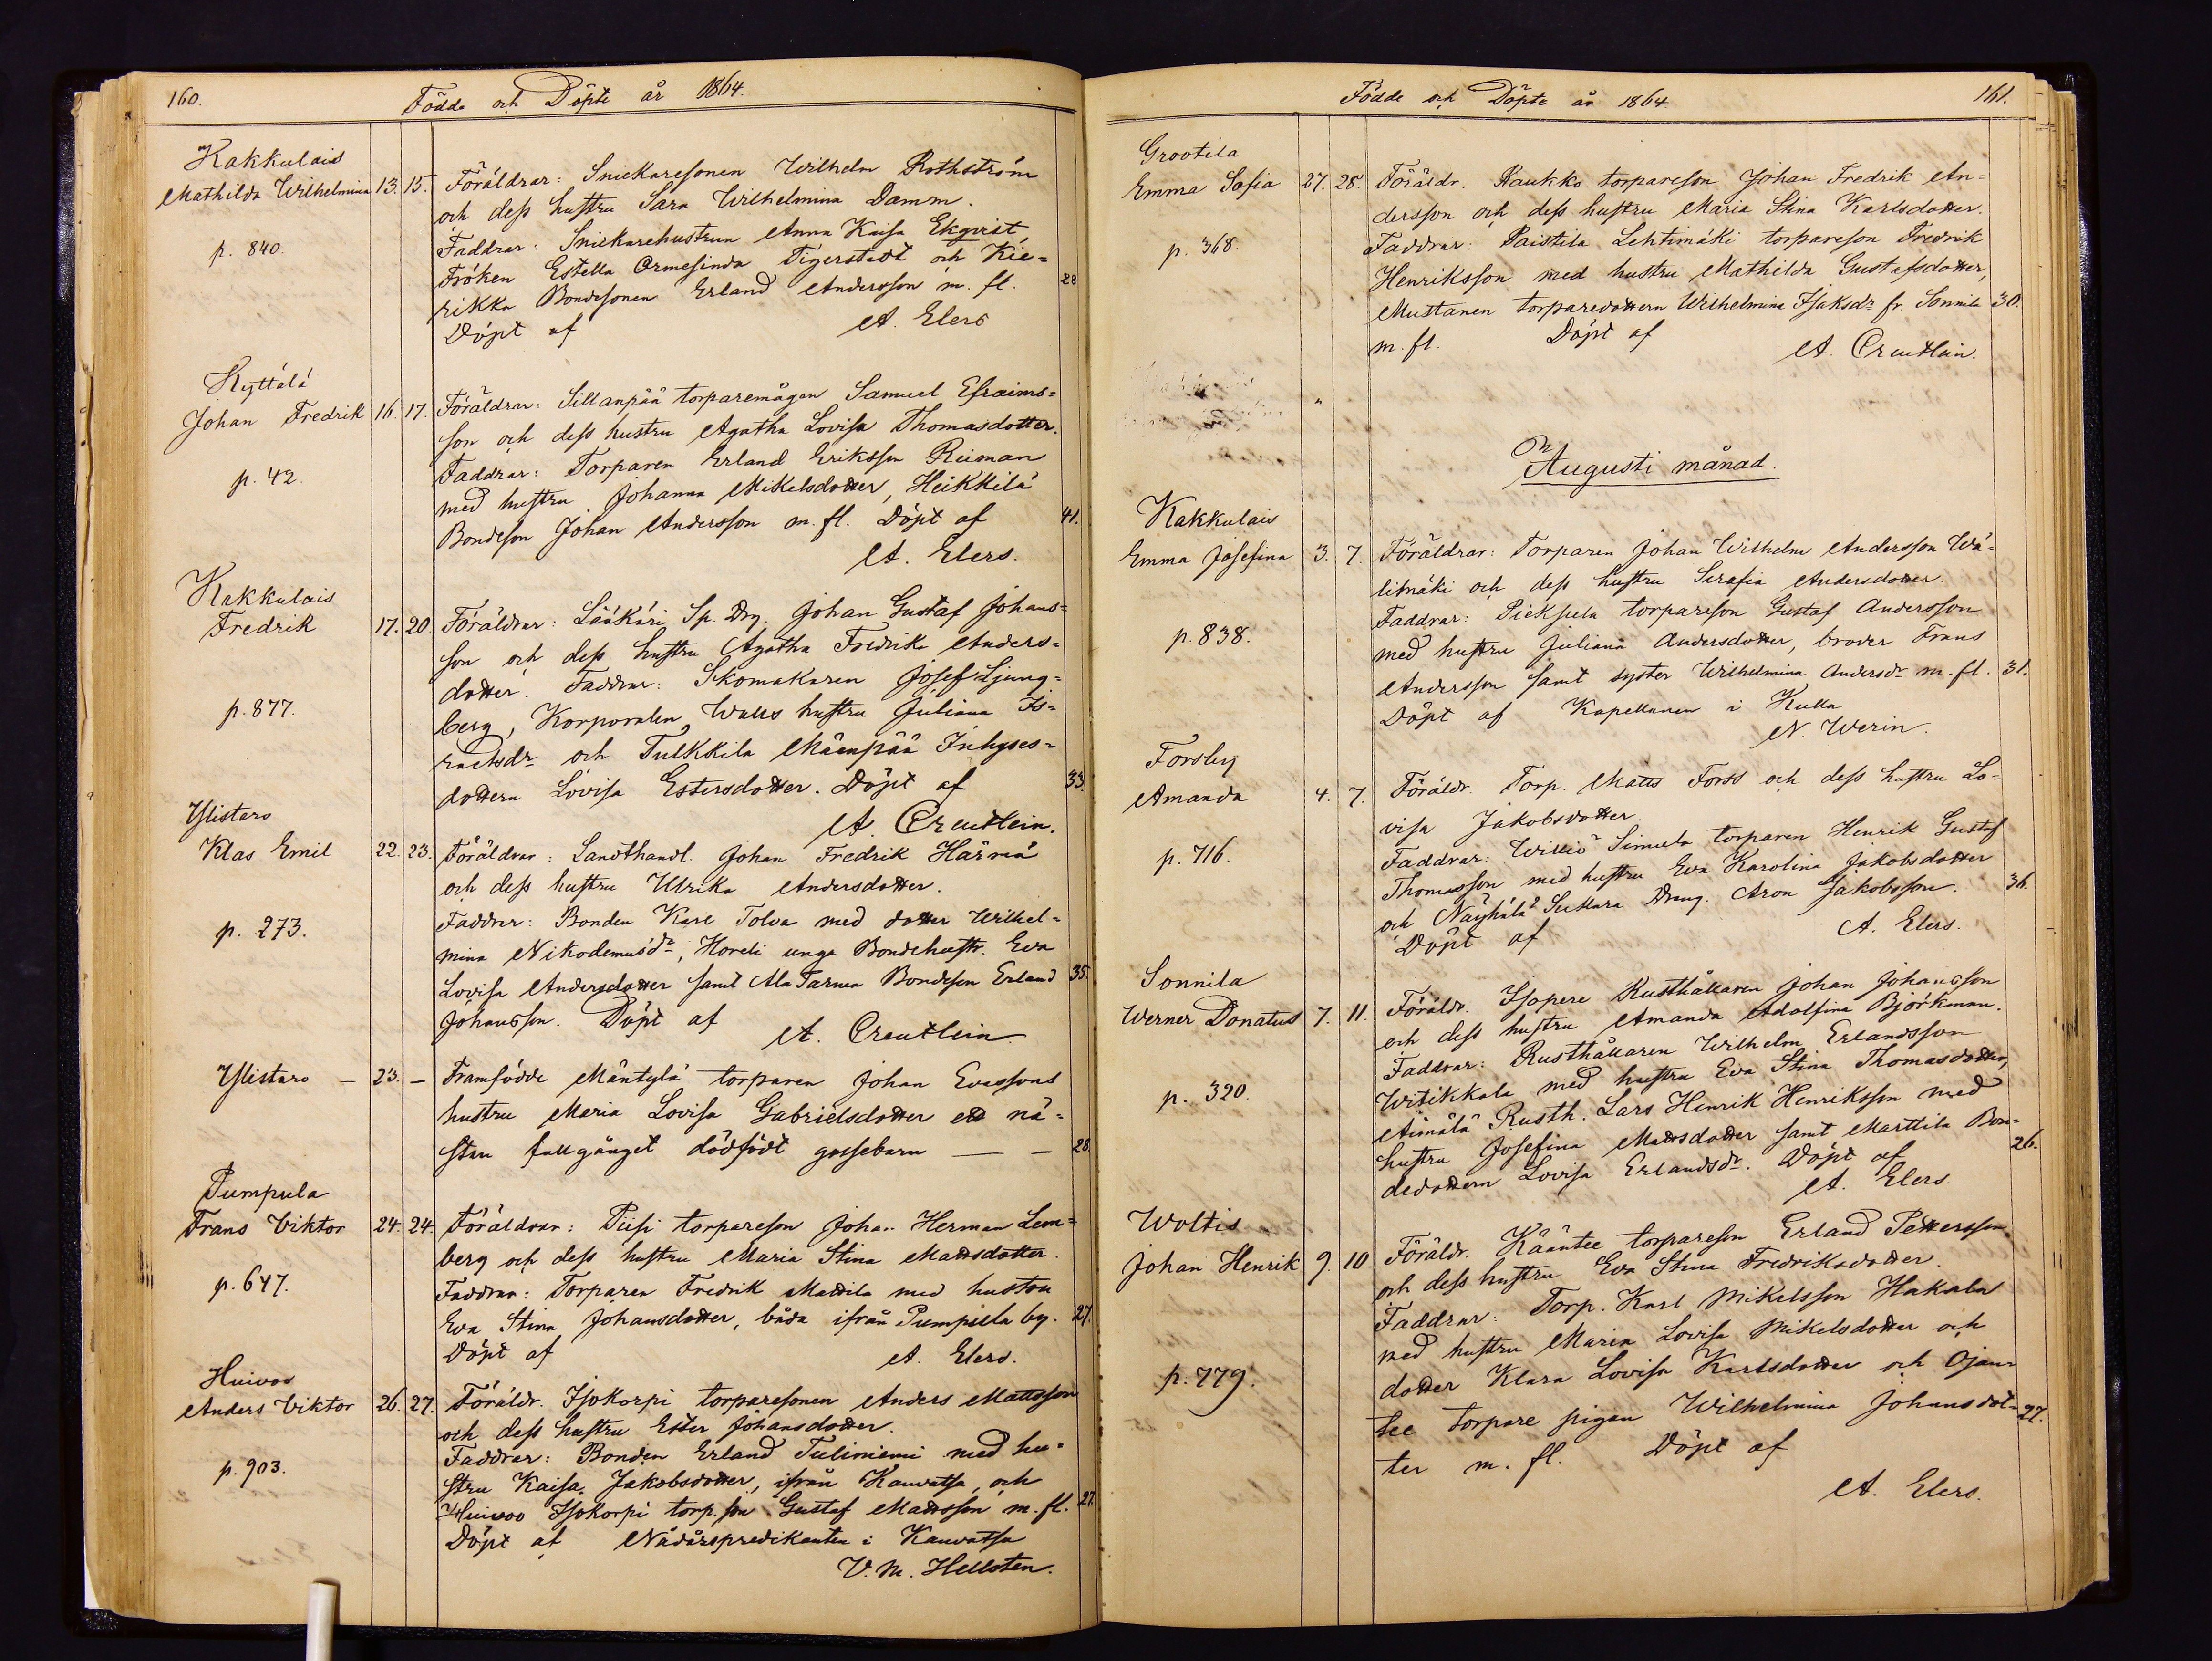 160.
Födde och Döpte år 1864.
Kakkulais
Mathilda Wilhelmina 13. 15.
p. 840.
Föräldrar: Snickaresonen Wilhelm Rothström
och dess hustru Sara Wilhelmina Damm.
Faddrar: Snickarehustrun Anna Kaisa Ekqvist,
Fröken Estella Ormesinda Tigerstedt och Kie=
rikka Bondesonen Erland Andersson m. fl. 28
Döpt af A. Elers
Kyttälä
Johan Fredrik 16. 17.
p. 42.
Föräldrar: Sillanpää torparemågen Samuel Efraims=
son och dess hustru Agatha Lovisa Thomasdotter.
Faddrar: Torparen Erland Eriksson Reiman
med hustru Johanna Mikelsdotter, Heikkilä
Bondeson Johan Andersson m. fl. Döpt af 41.
A. Elers.
Kakkulais
Fredrik 17. 20
p. 877.
Föräldrar: Lääkäri Sp. Drg. Johan Gustaf Johans=
son och dess hustru Agatha Fredrika Anders=
dotter. Faddrar: Skomakaren Josef Ljung=
berg, Korporalen Walls hustru Juliana Is=
raelsdr och Tulkkila Mäenpää Inhyses=
dottern Lovisa Estersdotter. Döpt af 33.
A. Creutlein.
Ylistaro
Klas Emil 22. 23.
p. 273.
Föräldrar: Landthandl. Johan Fredrik Härmä
och dess hustru Ulrika Andersdotter.
Faddrar: Bonden Karl Tolva med dotter Wilhel=
mina Nikodemusdr, Horeli unga Bondehustr. Eva
Lovisa Andersdotter samt Ala Tarmu Bondeson Erland 35.
Johansson. Döpt af A. Creutlein.
Ylistaro — 23. —
Framfödde Mäntylä torparen Johan Evassons
hustru Maria Lovisa Gabrielsdotter ett nä=
stan fullgånget dödfödt gossebarn — — 28.
Pumpula
Frans Viktor 24. 24.
p. 647.
Föräldrar: Piisi torpareson Johan Herman Lem=
berg och dess hustru Maria Stina Mattsdotter.
Faddrar: Torparen Fredrik Mattila med hustru
Eva Stina Johansdotter, båda ifrån Pumpula by. 27.
Döpt af A. Elers.
Huivoo
Anders Viktor 26. 27.
p. 903.
Föräldr. Isokorpi torparesonen Anders Mattsson
och dess hustru Ester Johansdotter.
Faddrar: Bonden Erland Tuliniemi med hu=
stru Kaisa Jakobsdotter, ifrån Kauvatsa, och
Huivoo Isokorpi torp. son Gustaf Mattsson m. fl. 27
Döpt af Nådårspredikanten i Kauvatsa
V. M. Hellsten.
Födde och Döpte år 1864.
161.
Grootila
Emma Sofia 27. 28.
p. 368.
Föräldr. Raukko torpareson Johan Fredrik An=
dersson och dess hustru Maria Stina Karlsdotter.
Faddrar: Paistila Lehtimäki torpareson Fredrik
Henriksson med hustru Mathilda Gustafsdotter,
Mustanen torparedottern Wilhelmina Isaksdr fr. Sonnila 30.
m. fl. Döpt af
A. Creutlein.
Augusti månad.
Kakkulais
Emma Josefina 3. 7.
p. 838.
Föräldrar: Torparen Johan Wilhelm Andersson Wä=
limäki och dess hustru Serafia Andersdotter.
Faddrar: Pieksula torpareson Gustaf Andersson
med hustru Juliana Andersdotter, broder Frans
Andersson samt syster Wilhelmina Andersdr m. fl. 31.
Döpt af Kapellanen i Kulla
N. Werin.
Forsby
Amanda 4. 7.
p. 716.
Föräldr. Torp. Matts Forss och dess hustru Lo=
visa Jakobsdotter.
Faddrar: Williö Simula torparen Henrik Gustaf
Thomasson med hustru Eva Karolina Jakobsdotter
och Näyhälä Sukura Dräng. Aron Jakobsson. 36.
Döpt af A. Elers.
Sonnila
Werner Donatus 7. 11.
p. 320.
Föräldr. Isopere Rusthållaren Johan Johansson
och dess hustru Amanda Adolfina Björkman.
Faddrar: Rusthållaren Wilhelm Erlandsson
Witikkala med hustru Eva Stina Thomasdotter,
Äimälä Rusth. Lars Henrik Henriksson med
hustru Josefina Mattsdotter samt Marttila Bon=
dedottern Lovisa Erlandsdr. Döpt af 26.
A. Elers.
Woltis
Johan Henrik 9. 10.
p. 779.
Föräldr. Kääntee torpareson Erland Pettersson
och dess hustru Eva Stina Fredriksdotter.
Faddrar: Torp. Karl Mikelsson Hakala
med hustru Maria Lovisa Mikelsdotter och
dotter Klara Lovisa Karlsdotter och Ojan=
see torpare pigan Wilhelmina Johansdot= 27.
ter m. fl. Döpt af
A. Elers.